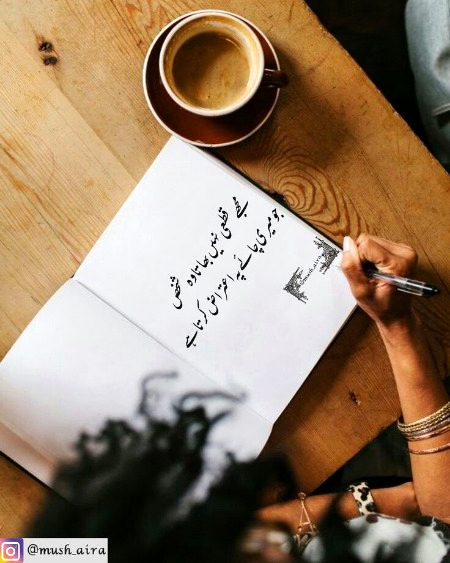 مجھے قطعی نہیں بھاتا وہ شخص
جو میری چائے پَر اعتراض کرتا ہے
@mush_aira
@mush_aira